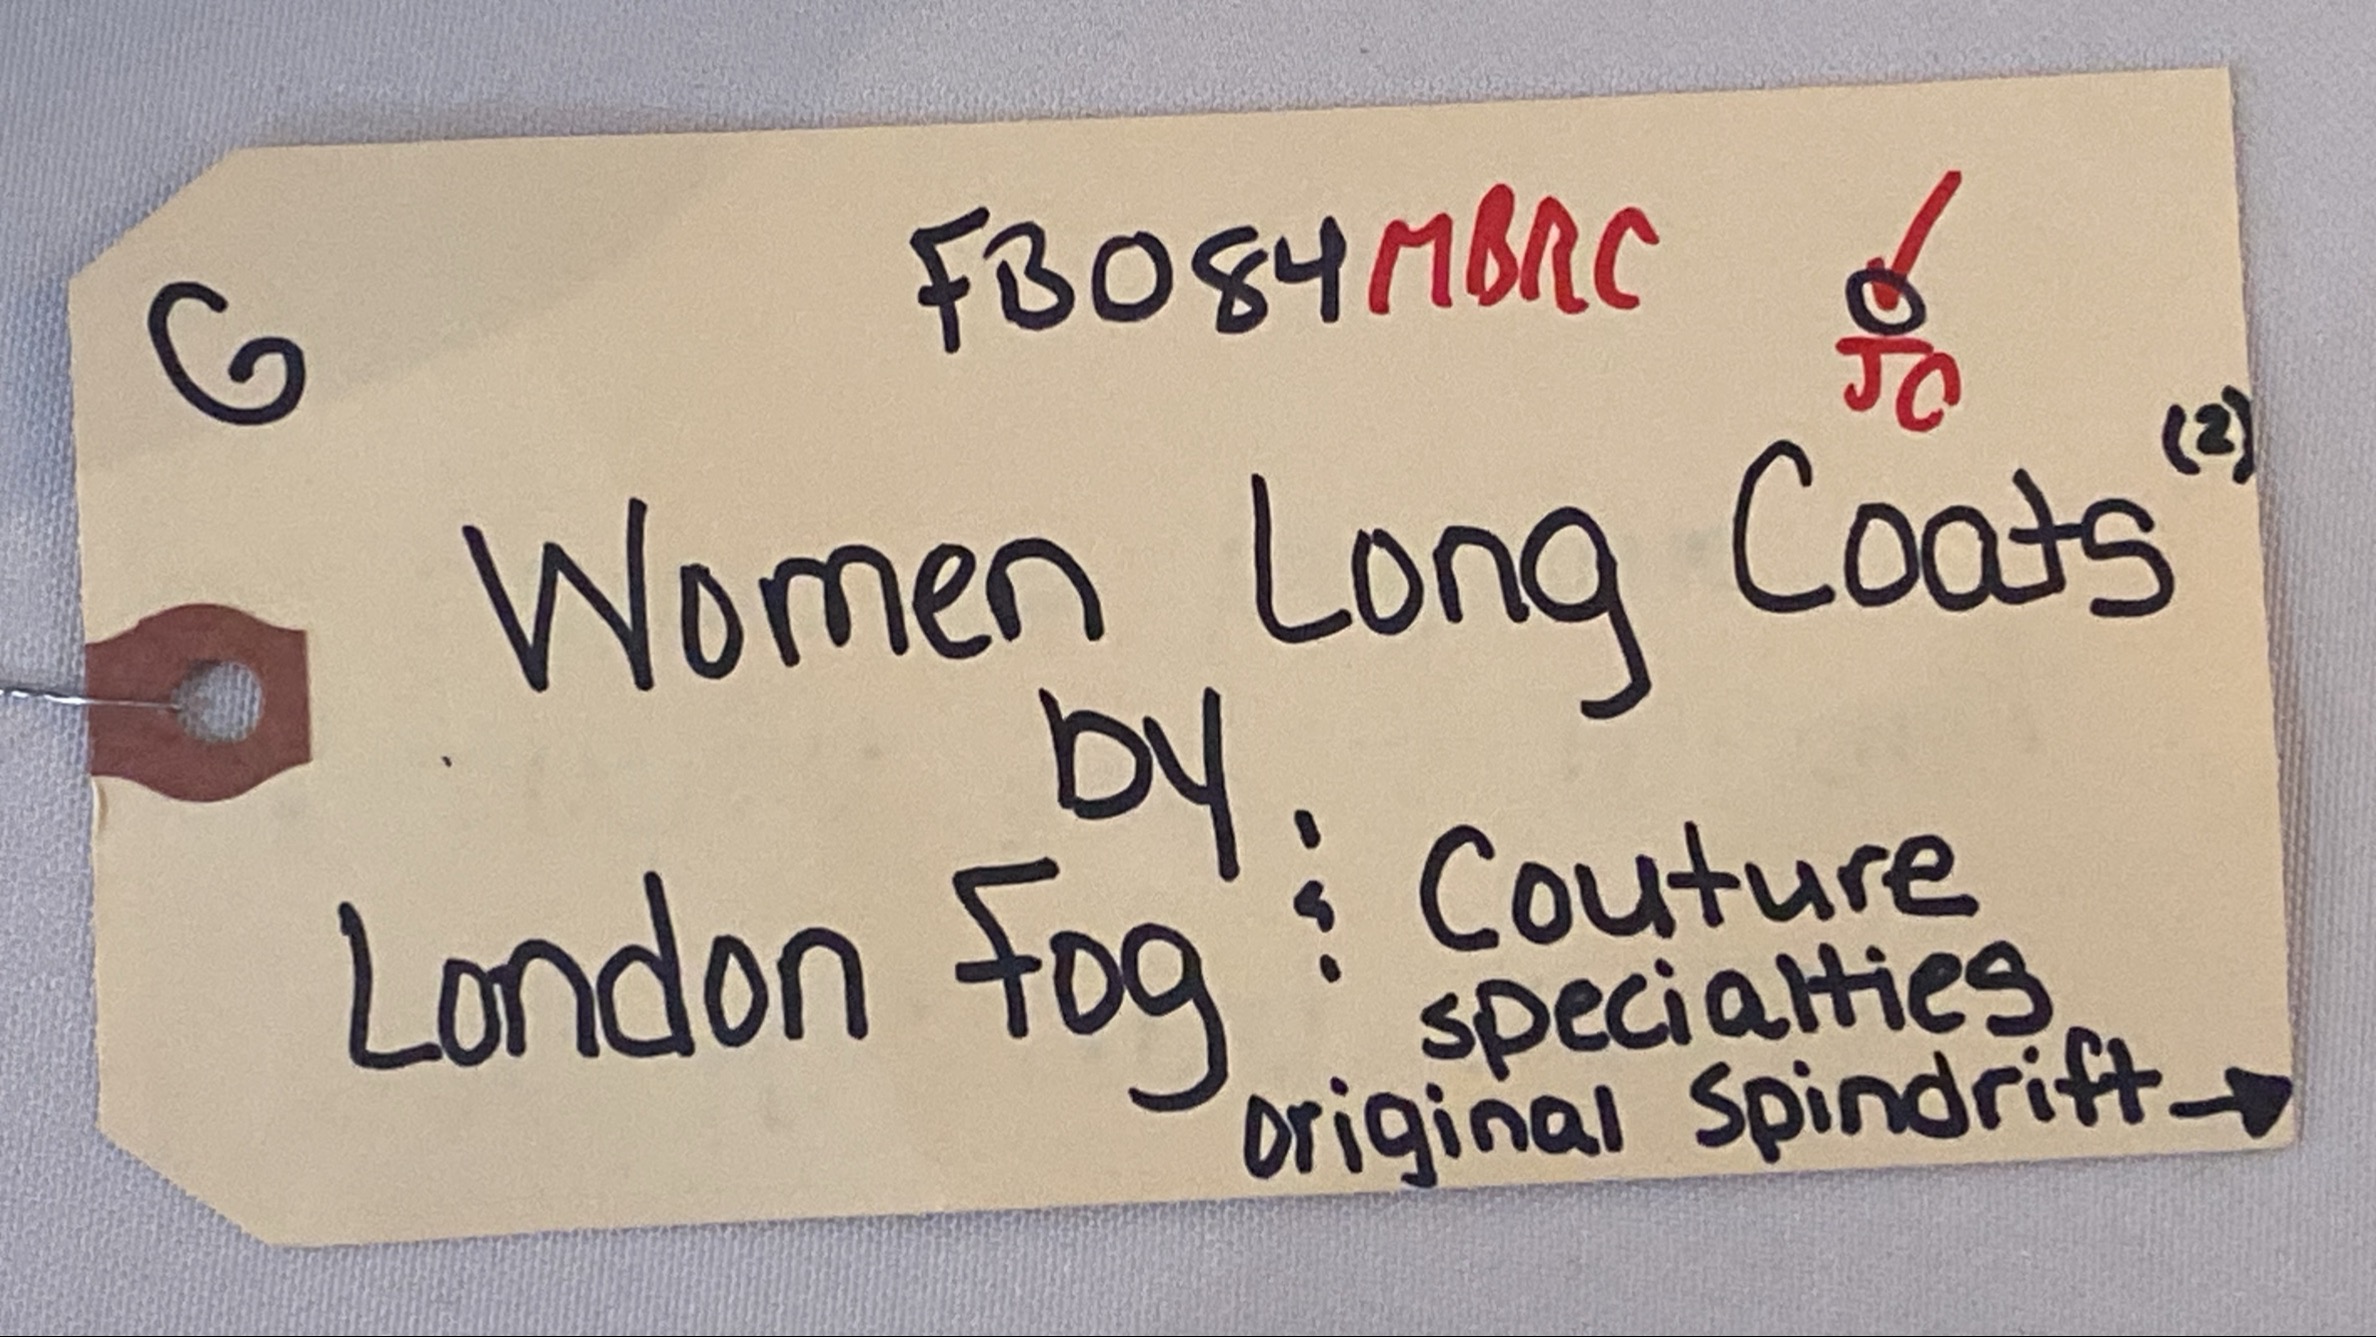 G
FB084MBRC
JO
Women Long Coats (2)
by
London Fog & Couture
specialties
original Spindrift →